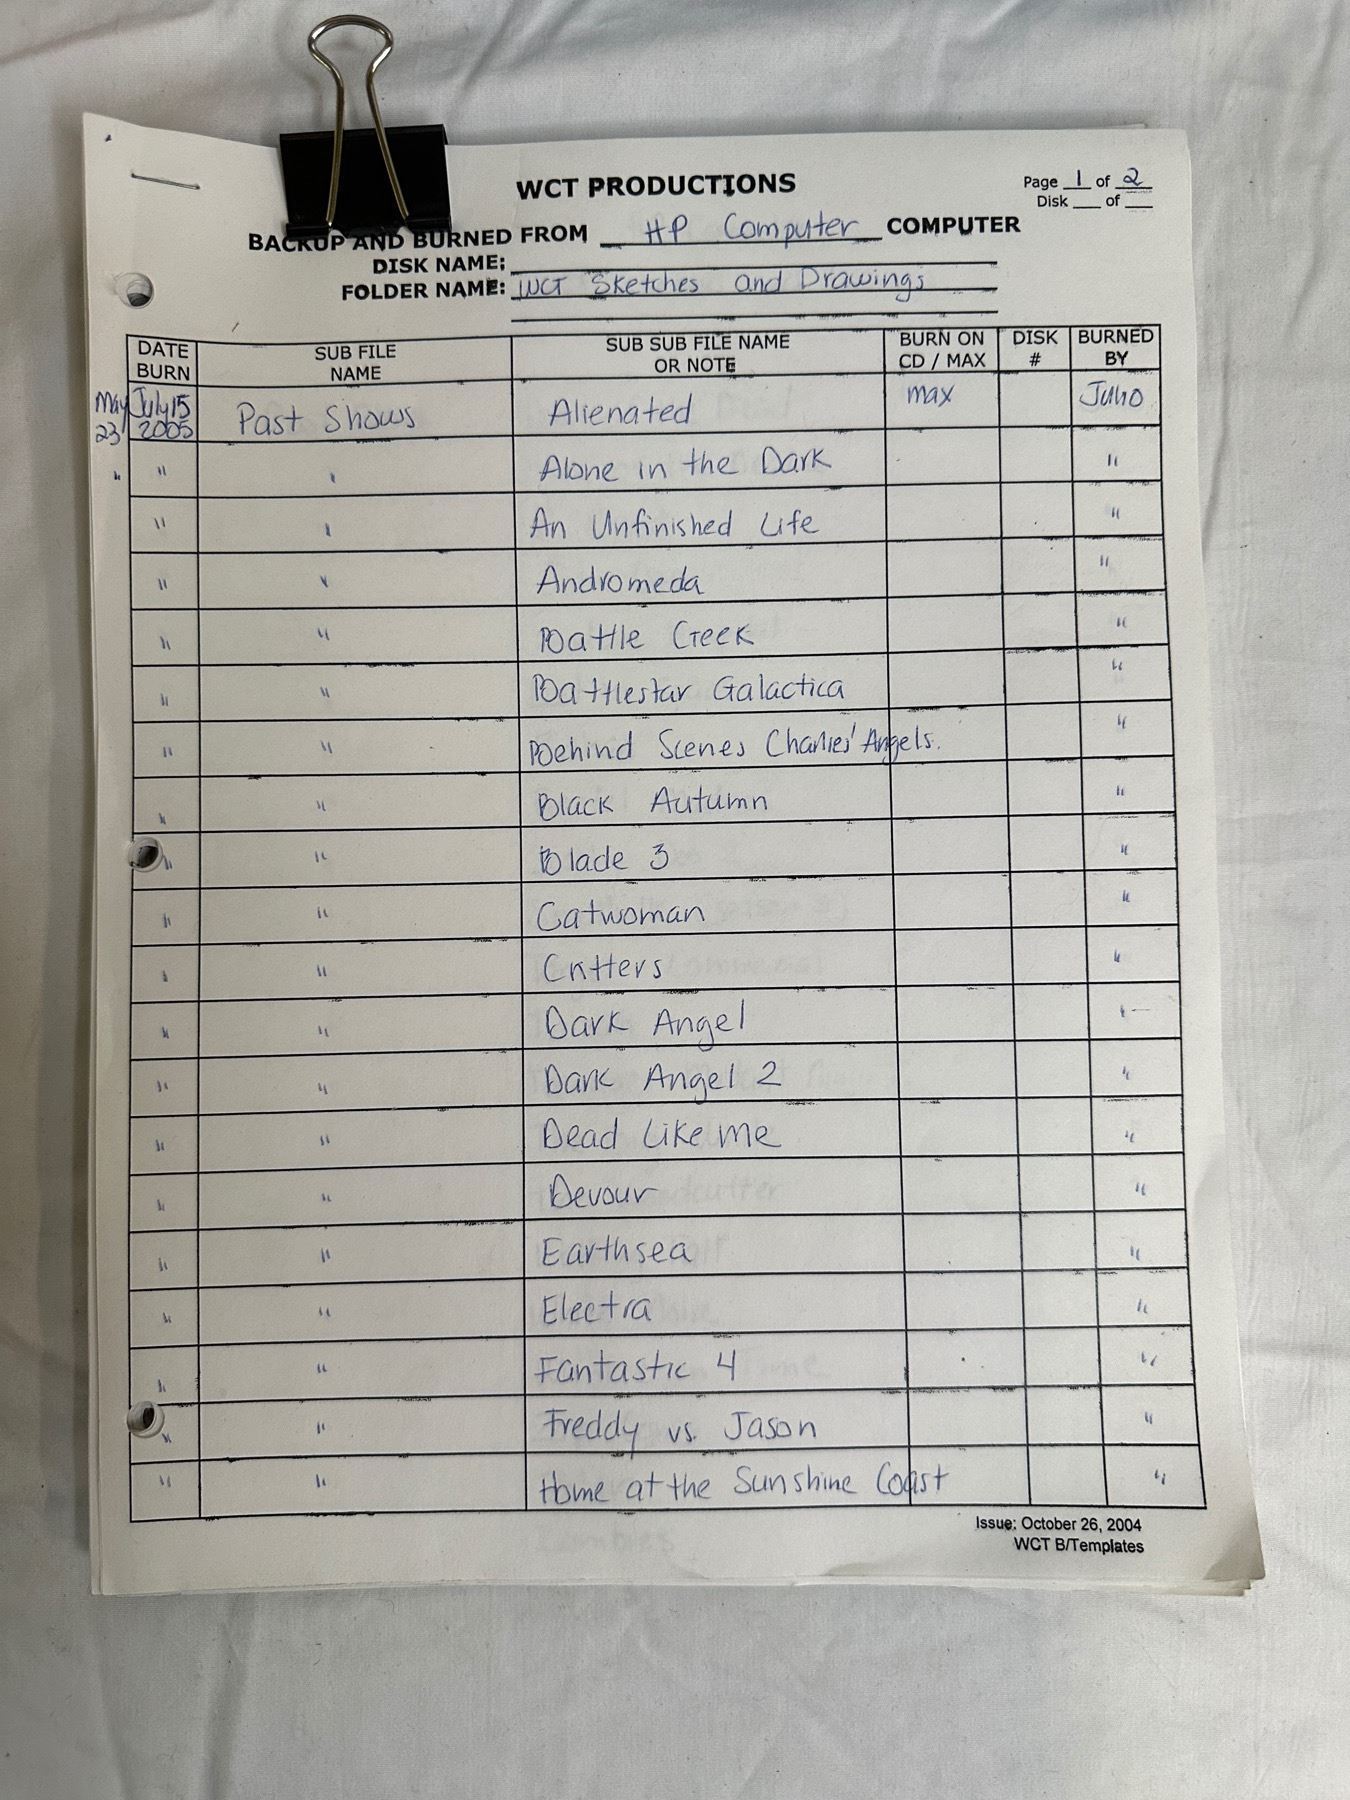 WCT PRODUCTIONS
Page 1 of 2
Disk ___ of ___
BACKUP AND BURNED FROM HP Computer COMPUTER
DISK NAME:
FOLDER NAME: WCT Sketches and Drawings
DATE BURN | SUB FILE NAME | SUB SUB FILE NAME OR NOTE | BURN ON CD / MAX | DISK # | BURNED BY
May 23 July 15 2005 | Past Shows | Alienated | max | | Julio
" | " | Alone in the Dark | | | "
" | " | An Unfinished Life | | | "
" | " | Andromeda | | | "
" | " | Battle Creek | | | "
" | " | Battlestar Galactica | | | "
" | " | Behind Scenes Charlies' Angels. | | | "
" | " | Black Autumn | | | "
" | " | Blade 3 | | | "
" | " | Catwoman | | | "
" | " | Critters | | | "
" | " | Dark Angel | | | "
" | " | Dark Angel 2 | | | "
" | " | Dead Like me | | | "
" | " | Devour | | | "
" | " | Earthsea | | | "
" | " | Electra | | | "
" | " | Fantastic 4 | | | "
" | " | Freddy vs. Jason | | | "
" | " | Home at the Sunshine Coast | | | "
Issue: October 26, 2004
WCT B/Templates